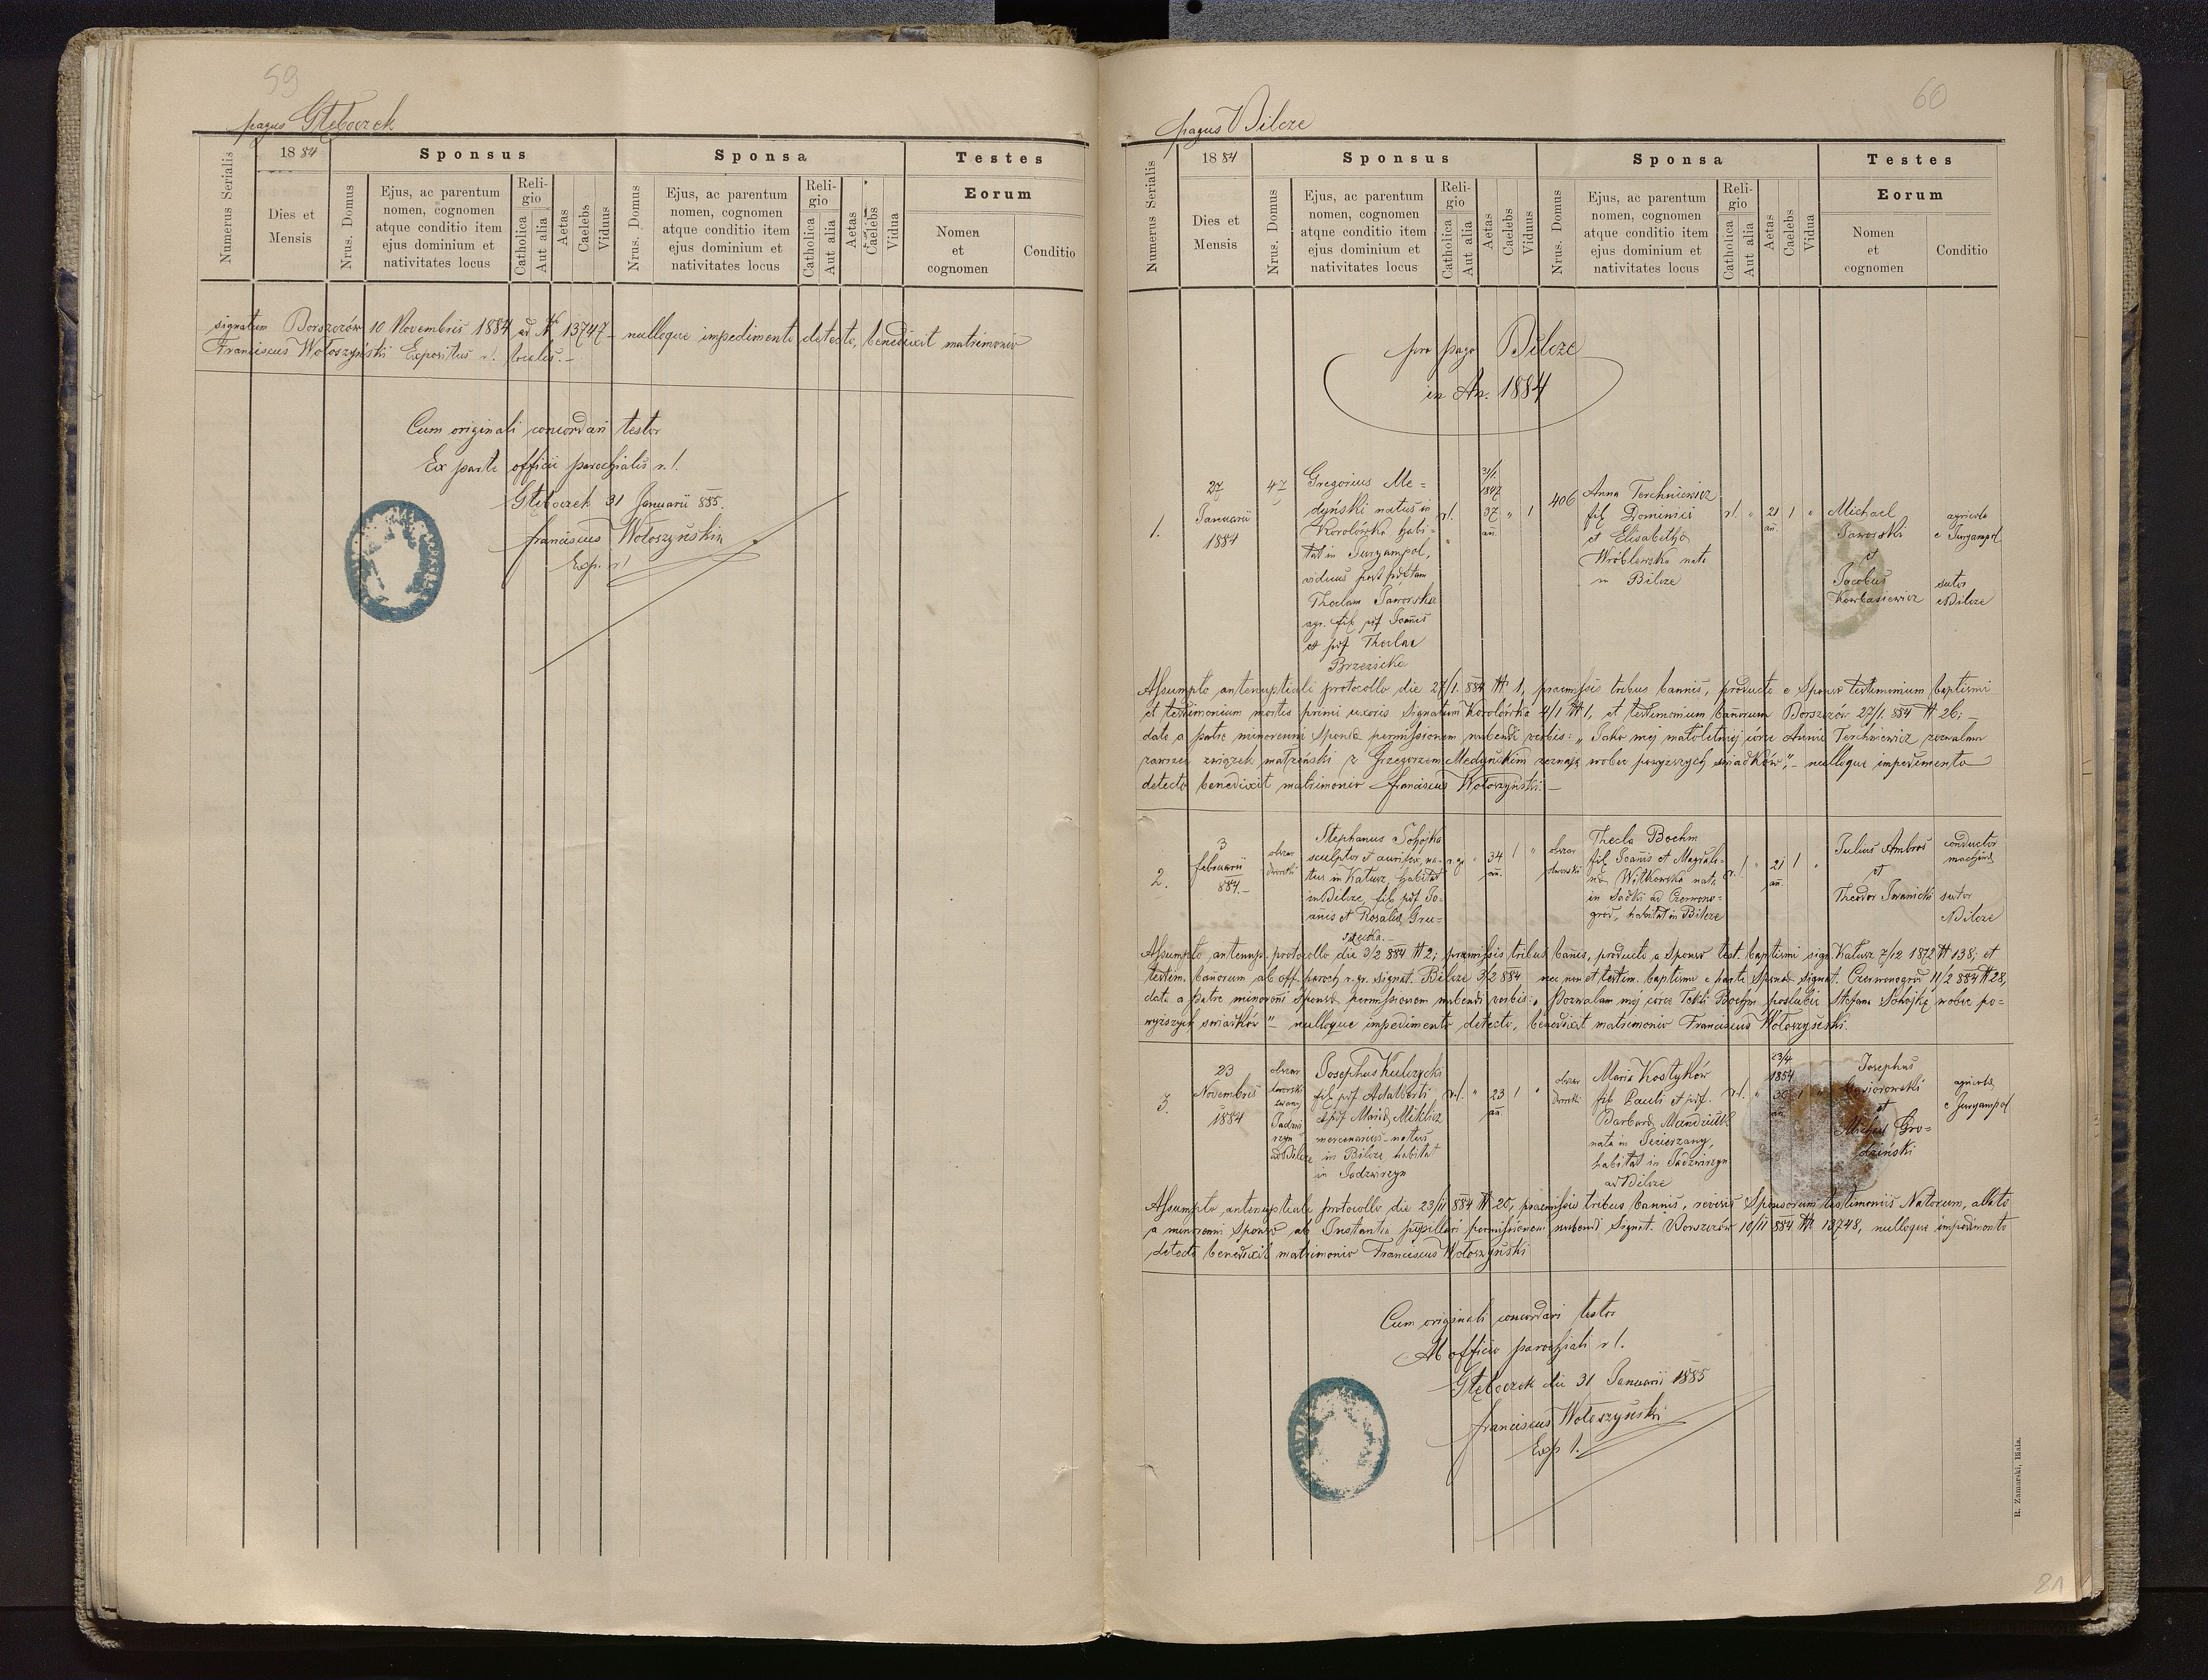 59
pagus Głęboczek
Numerus Serialis
18 84
Sponsus
Sponsa
Testes
Dies et
Mensis
Nrus. Domus
Ejus, ac parentum
nomen, cognomen
atque conditio item
ejus dominium et
nativitates locus
Religio
Catholica
Aut alia
Aetas
Caelebs
Viduus
Nrus. Domus
Ejus, ac parentum
nomen, cognomen
atque conditio item
ejus dominium et
nativitates locus
Religio
Catholica
Aut alia
Aetas
Caelebs
Vidua
Eorum
Nomen
et
cognomen
Conditio
signatum Borszczów 10 Novembris 1884 ad № 13747 – nulloque impedimento detecto, benedixit matrimonio
Franciscus Wołoszyński Expositus r.l. localis. –
Cum originali concordari testor
Ex parte officii parochialis r.l.
Głęboczek 31 Januarii 885.
Franciscus Wołoszyński
Exp. r.l
60
pagus Bilcze
Numerus Serialis
18 84
Sponsus
Sponsa
Testes
Dies et
Mensis
Nrus. Domus
Ejus, ac parentum
nomen, cognomen
atque conditio item
ejus dominium et
nativitates locus
Religio
Catholica
Aut alia
Aetas
Caelebs
Viduus
Nrus. Domus
Ejus, ac parentum
nomen, cognomen
atque conditio item
ejus dominium et
nativitates locus
Religio
Catholica
Aut alia
Aetas
Caelebs
Vidua
Eorum
Nomen
et
cognomen
Conditio
pro pago Bilcze
in An. 1884
1.
27
Januarii
1884
47
Gregorius Me-
dyński natus in
Korolówka habi-
tat in Juryampol,
viduus post
Theclam Jaworska
agr. fil. Joannis
et Theclae
Brzezicka
r.l.
1847
37
an.
" 1
406
Anna Terchniewicz
fil. Dominici
et Elisabetha
Wróblewska nata
in Bilcze
r.l. "
21
an.
1 "
Michael
Jaworski
et
Jacobus
Korbasiewicz
agricola
e Juryampol
sutor
e Bilcze
Assumpto antenuptiali protocollo die 27/1. 884 № 1, praemissis tribus bannis, producto e Sponso testimonium baptismi
et testimonium mortis primi uxoris signatum Korolówka 4/1 № 1, et testimonium bannorum Borszczów 27/1. 884 № 26; –
dato a patre minorenni Sponsae permissionem nubendi verbis: „Jako mej małoletniej córce Annie Terchniewicz zezwalam
zawrzeć związek małżeński z Grzegorzem Medyńskim zeznaję wobec powyższych świadków", – nulloque impedimento
detecto benedixit matrimonio Franciscus Wołoszyński. –
2.
3
februarii
884. –
obszar
dworski
Stephanus Sohojka
sculptor et aurifex, na-
tus in Kałusz, habitat
in Bilcze, fil. Jo-
annis et Rosalia Gru-
r.g. "
34
an.
1 "
obszar
dworski
Thecla Boehm
fil. Joannis et Magdale-
na Witkowska nata
in Sadki ad Czerwono-
gród, habitat in Bilcze
r.l.
"
21
an.
1 "
Julius Ambros
et
Theodor Iwanicki
conductor
machina
sutor
Bilcze
Assumpto antenup. protocollo die 3/2 884 № 2; praemissis tribus bannis, producto a Sponso test. baptismi sign. Kałusz 7/12 1872 № 138; et
testim. bannorum ab off. paroch. r.gr. signat. Bilcze 3/2 884 nec non et testim. baptismi e parte Sponsae signat. Czerwonogród 11/2 884 № 28,
dato a patre minorenni Sponsa permissionem nubendi verbis: „Pozwalam mej córce Tekli Boehm poślubić Stefana Sohojkę wobec po-
wyższych świadków" – nulloque impedimento detecto, benedixit matrimonio Franciscus Wołoszyński.
3.
23
Novembris
1884
obszar
dworski
zwany
Jadzwi
rzyn
ad Bilcze
Josephus Kulczycki
fil. Adalberti
Maria Miklisz
mercenarius natus
in Bilcze habitat
in Jadzwirzyn
r.l. "
23
an.
1 "
obszar
dworski
Maria Kostyków
fil. Pauli et
Barbara Mandziuk
nata in Jezierzany,
habitat in Jadzwirzyn
ad Bilcze
r.l. "
23/4
1854
30
an.
1 "
Josephus
et
Michael Gro-
dziński
agricola
e Juryampol
Assumpto antenuptiale protocollo die 23/11 884 № 20, praemissis tribus bannis, revisis Sponsorum testimoniis Natorum, allato
a minorenni Sponso ab Instantia pupillari permissionem nubendi Signat. Borszczów 10/11 884 № 13748, nulloque impedimento
detecto benedixit matrimonio Franciscus Wołoszyński
Cum originali concordari testor
Ab officio parochiali r l.
Głęboczek die 31 Januarii 1885
Franciscus Wołoszyński
Exp l.
R. Zamarski, Biała.
81